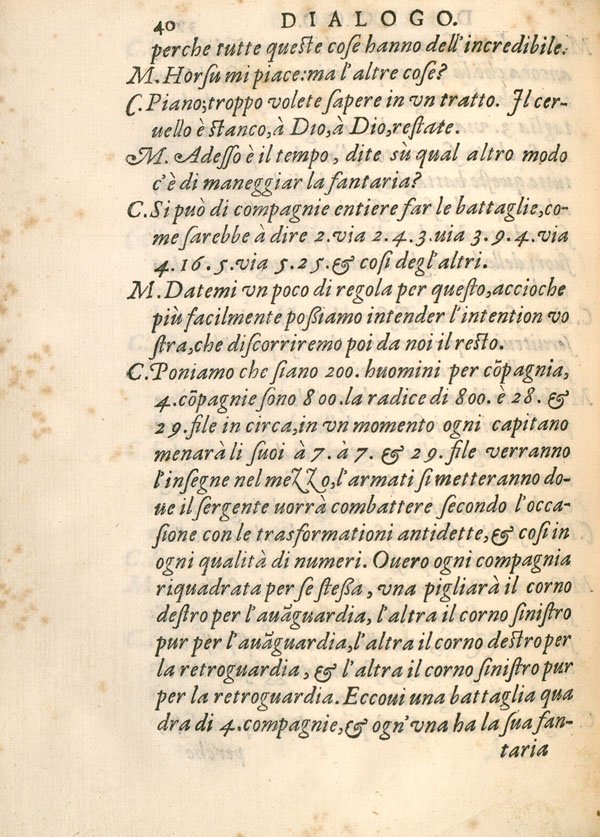 40 DIALOGO.
perche tutte queſte coſe hanno dell'incredibile.
M. Horſu mi piace: ma l'altre coſe?
C. Piano; troppo volete ſapere in vn tratto. Il cer-
uello è ſtanco, à Dio, à Dio, reſtate.
M. Adeſſo è il tempo, dite sù qual altro modo
c'è di maneggiar la fantaria?
C. Si può di compagnie entiere far le battaglie, co-
me ſarebbe à dire 2. via 2. 4. 3. uia 3. 9. 4. via
4. 16. 5. via 5. 25. & coſi degl'altri.
M. Datemi vn poco di regola per queſto, accioche
più facilmente poßiamo intender l'intention vo
ſtra, che diſcorriremo poi da noi il reſto.
C. Poniamo che ſiano 200. huomini per cōpagnia,
4. cōpagnie ſono 800. la radice di 800. è 28. &
29. file in circa, in vn momento ogni capitano
menarà li ſuoi à 7. à 7. & 29. file verranno
l'inſegne nel mezzo, l'armati ſi metteranno do-
ue il ſergente uorrà combattere ſecondo l'occa-
ſione con le trasformationi antidette, & coſi in
ogni qualità di numeri. Ouero ogni compagnia
riquadrata per ſe ſteßa, vna pigliarà il corno
deſtro per l'auãguardia, l'altra il corno ſiniſtro
pur per l'auãguardia, l'altra il corno deſtro per
la retroguardia, & l'altra il corno ſiniſtro pur
per la retroguardia. Eccoui una battaglia qua
dra di 4. compagnie, & ogn'vna ha la ſua fan-
taria